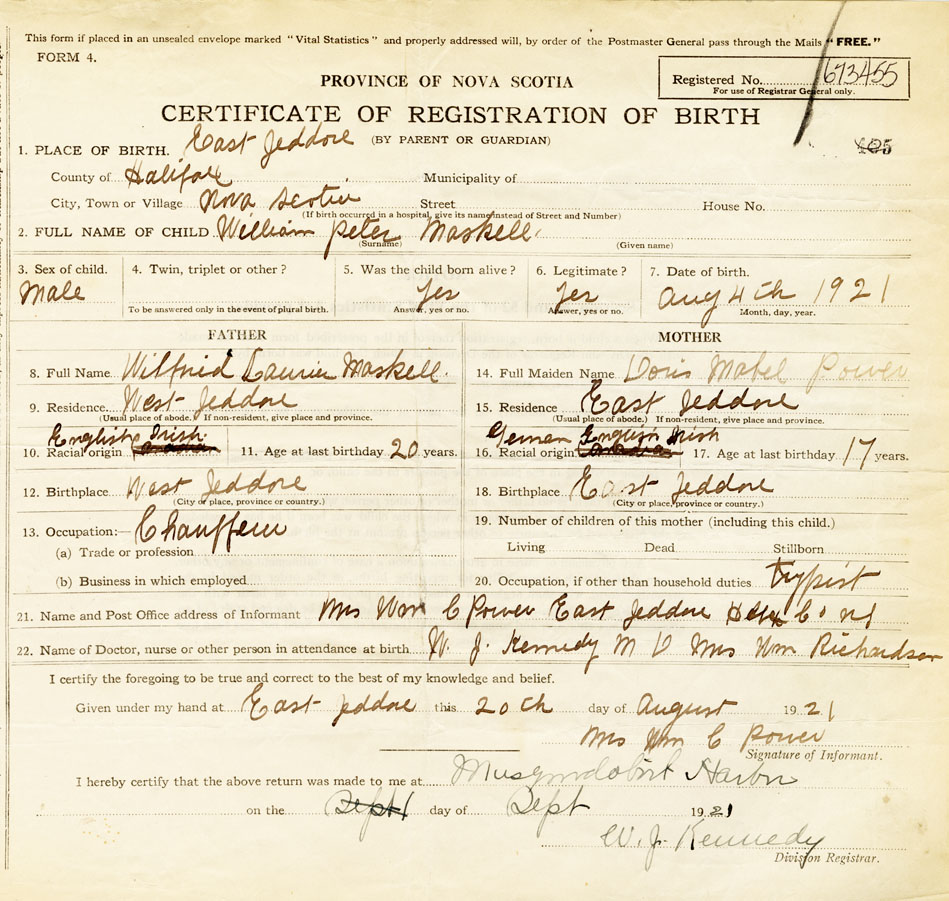 This form if placed in an unsealed envelope marked "Vital Statistics" and properly addressed will, by order of the Postmaster General pass through the Mails "FREE."
FORM 4.
PROVINCE OF NOVA SCOTIA
Registered No. 673455
For use of Registrar General only.
CERTIFICATE OF REGISTRATION OF BIRTH
(BY PARENT OR GUARDIAN)
1. PLACE OF BIRTH. East Jeddore
County of Halifax Municipality of
City, Town or Village Nova Scotia Street House No.
(If birth occurred in a hospital, give its name instead of Street and Number)
2. FULL NAME OF CHILD William Peter Maskell.
(Surname) (Given name)
3. Sex of child. 4. Twin, triplet or other? 5. Was the child born alive? 6. Legitimate? 7. Date of birth.
Male Yes Yes Aug 4th 1921
To be answered only in the event of plural birth. Answer, yes or no. Answer, yes or no. Month, day, year.
FATHER MOTHER
8. Full Name Wilfrid Laurier Maskell. 14. Full Maiden Name Doris Mabel Power
9. Residence West Jeddore 15. Residence East Jeddore
(Usual place of abode.) If non-resident, give place and province. (Usual place of abode.) If non-resident, give place and province.
English Irish German English Irish
10. Racial origin Canadian 11. Age at last birthday 20 years. 16. Racial origin Canadian 17. Age at last birthday 17 years.
12. Birthplace West Jeddore 18. Birthplace East Jeddore
(City or place, province or country.) (City or place, province or country.)
13. Occupation:— Chauffeur 19. Number of children of this mother (including this child.)
(a) Trade or profession Living Dead Stillborn
(b) Business in which employed 20. Occupation, if other than household duties typist
21. Name and Post Office address of Informant Mrs Wm C Power East Jeddore Co NS
22. Name of Doctor, nurse or other person in attendance at birth W. J. Kennedy M D Mrs Wm Richardson
I certify the foregoing to be true and correct to the best of my knowledge and belief.
Given under my hand at East Jeddore this 20th day of August 1921
Mrs Wm C Power
Signature of Informant.
I hereby certify that the above return was made to me at Musquodoboit Harbor
on the Sept 1 day of Sept 1921
W. J. Kennedy
Division Registrar.